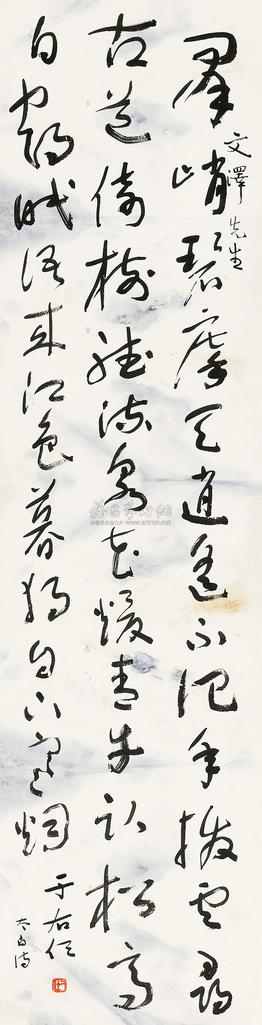 文澤先生
羣峭碧摩天逍遥不記年撥雲尋
古道倚樹聽流泉花煖青牛臥松高
白鶴眠語來江色暮獨自下寒烟
于右任
太白詩
www.artron.net